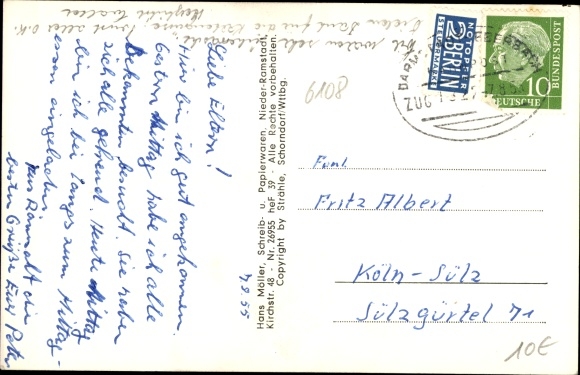 Liebe Eltern!
Hier bin ich gut angekommen.
Gestern Mittag habe ich alle
Bekannten besucht. Sie haben
sich alle gefreut. Heute Mittag
bin ich bei Langs zum Mittag-
essen eingeladen.
Aus Ramstadt die
besten Grüße Euer Peter
7.9.55
Vielen Dank für die
Herzliche
Hans Möller, Schreib- u. Papierwaren, Nieder-Ramstadt,
Kirchstr. 48 - Nr. 26955 heF 39 - Alle Rechte vorbehalten.
Copyright by Strähle, Schorndorf/Wttbg.
8019
NOTOPFER
2 BERLIN
STEUERMARKE
DEUTSCHE
BUNDESPOST
10
ZUG
Faml.
Fritz Albert
Köln-Sülz
Sülzgürtel 71
10€